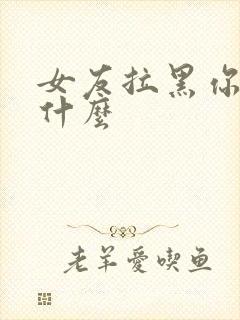 女友拉黑你
什麼
老羊愛喫鱼